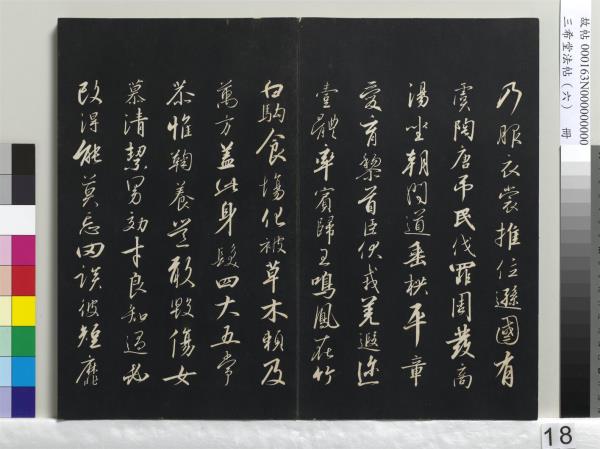 乃服衣裳推位遜國有
虞陶唐弔民伐罪周發商
湯坐朝問道垂拱平章
愛育黎首臣伏戎羌遐迩
壹體率賓歸王鳴鳳在竹
白駒食場化被草木賴及
萬方蓋此身髮四大五常
恭惟鞠養豈敢毀傷女
慕清潔男効才良知過必
改得能莫忘罔談彼短靡
故帖 000163N000000000
三希堂法帖（六） 冊
18